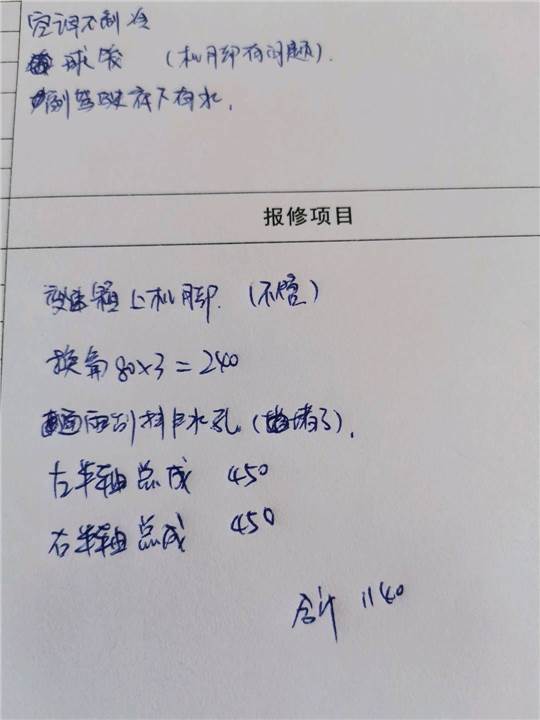 空调不制冷
球笼 (机脚有问题).
副驾驶座下有水.
报修项目
变速箱上机脚. (不管)
换氟 80x3=240
雨刮排水孔 (堵了).
左半轴总成 450
右半轴总成 450
合计 1140